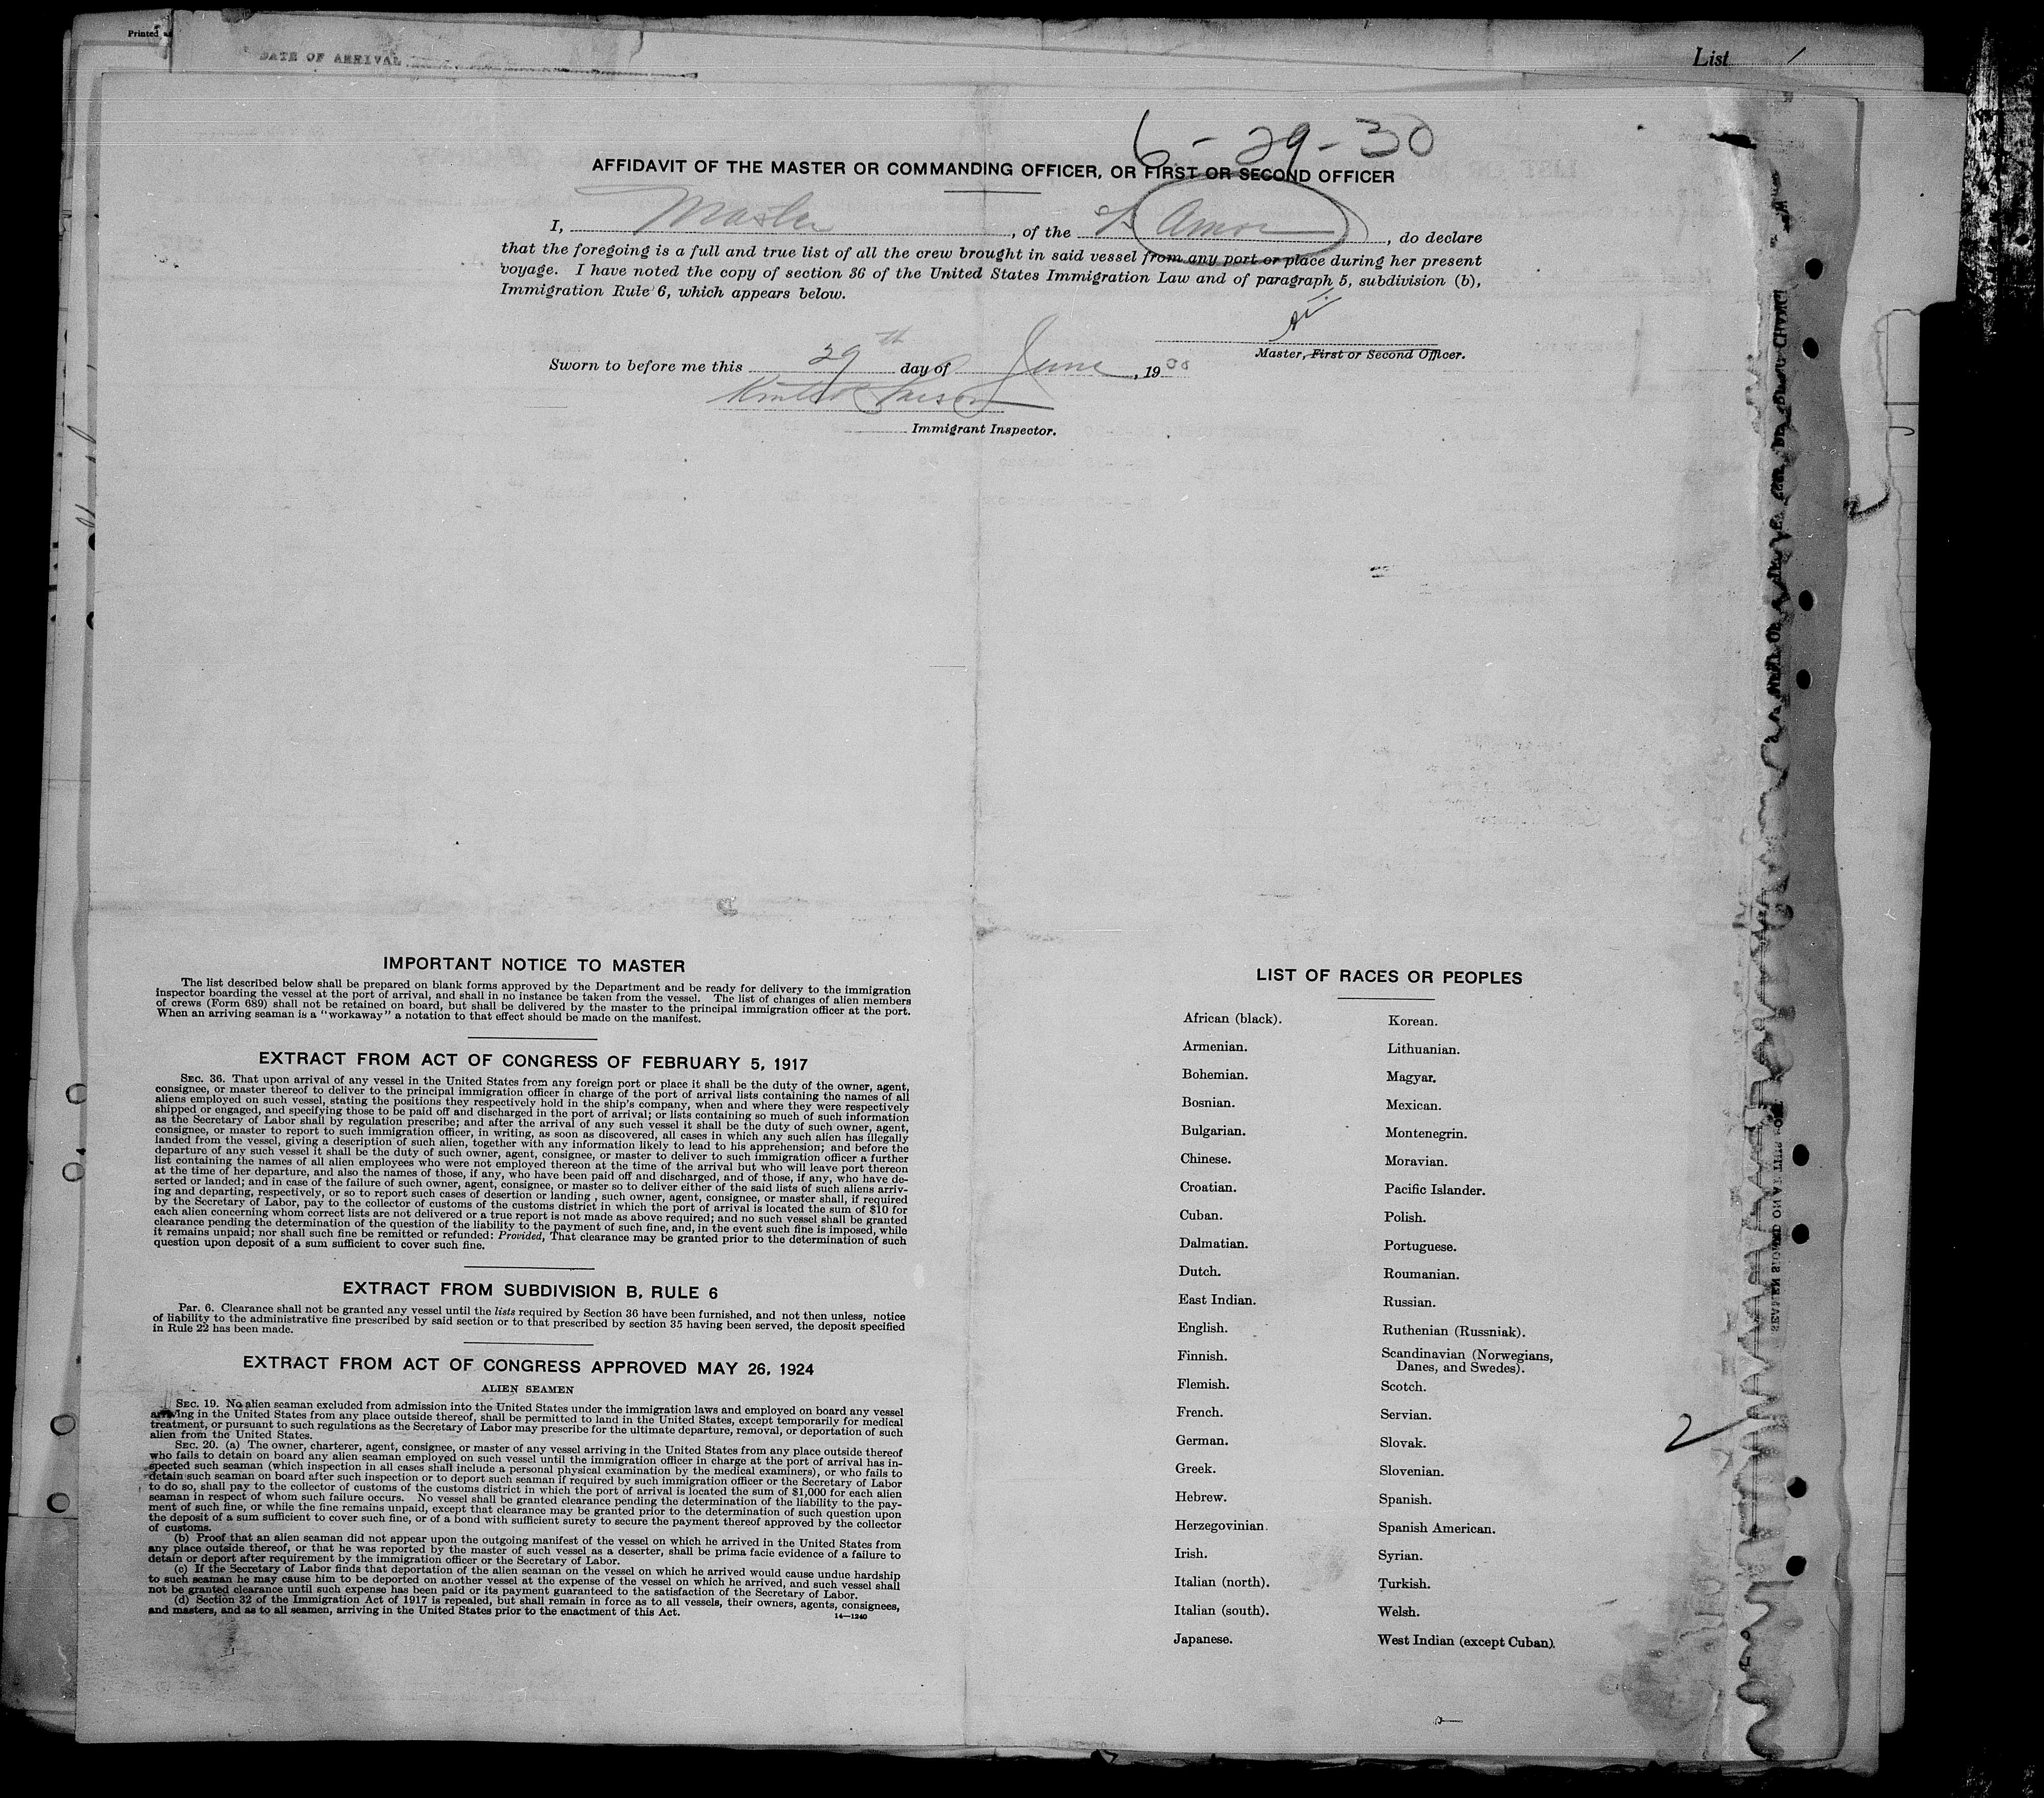 Printed
DATE OF ARRIVAL
List 1
6-29-30
AFFIDAVIT OF THE MASTER OR COMMANDING OFFICER, OR FIRST OR SECOND OFFICER
I, Master, of the Amor, do declare
that the foregoing is a full and true list of all the crew brought in said vessel from any port or place during her present
voyage. I have noted the copy of section 36 of the United States Immigration Law and of paragraph 5, subdivision (b),
Immigration Rule 6, which appears below.
Master, First or Second Officer.
Sworn to before me this 29th day of June, 1930
Immigrant Inspector.
IMPORTANT NOTICE TO MASTER
The list described below shall be prepared on blank forms approved by the Department and be ready for delivery to the immigration
inspector boarding the vessel at the port of arrival, and shall in no instance be taken from the vessel. The list of changes of alien members
of crews (Form 689) shall not be retained on board, but shall be delivered by the master to the principal immigration officer at the port.
When an arriving seaman is a "workaway" a notation to that effect should be made on the manifest.
EXTRACT FROM ACT OF CONGRESS OF FEBRUARY 5, 1917
SEC. 36. That upon arrival of any vessel in the United States from any foreign port or place it shall be the duty of the owner, agent,
consignee, or master thereof to deliver to the principal immigration officer in charge of the port of arrival lists containing the names of all
aliens employed on such vessel, stating the positions they respectively hold in the ship's company, when and where they were respectively
shipped or engaged, and specifying those to be paid off and discharged in the port of arrival; or lists containing so much of such information
as the Secretary of Labor shall by regulation prescribe; and after the arrival of any such vessel it shall be the duty of such owner, agent,
consignee, or master to report to such immigration officer, in writing, as soon as discovered, all cases in which any such alien has illegally
landed from the vessel, giving a description of such alien, together with any information likely to lead to his apprehension; and before the
departure of any such vessel it shall be the duty of such owner, agent, consignee, or master to deliver to such immigration officer a further
list containing the names of all alien employees who were not employed thereon at the time of the arrival but who will leave port thereon
at the time of her departure, and also the names of those, if any, who have been paid off and discharged, and of those, if any, who have de-
serted or landed; and in case of the failure of such owner, agent, consignee, or master so to deliver either of the said lists of such aliens arriv-
ing and departing, respectively, or so to report such cases of desertion or landing , such owner, agent, consignee, or master shall, if required
by the Secretary of Labor, pay to the collector of customs of the customs district in which the port of arrival is located the sum of $10 for
each alien concerning whom correct lists are not delivered or a true report is not made as above required; and no such vessel shall be granted
clearance pending the determination of the question of the liability to the payment of such fine, and, in the event such fine is imposed, while
it remains unpaid; nor shall such fine be remitted or refunded: Provided, That clearance may be granted prior to the determination of such
question upon deposit of a sum sufficient to cover such fine.
EXTRACT FROM SUBDIVISION B, RULE 6
Par. 6. Clearance shall not be granted any vessel until the lists required by Section 36 have been furnished, and not then unless, notice
of liability to the administrative fine prescribed by said section or to that prescribed by section 35 having been served, the deposit specified
in Rule 22 has been made.
EXTRACT FROM ACT OF CONGRESS APPROVED MAY 26, 1924
ALIEN SEAMEN
SEC. 19. No alien seaman excluded from admission into the United States under the immigration laws and employed on board any vessel
arriving in the United States from any place outside thereof, shall be permitted to land in the United States, except temporarily for medical
treatment, or pursuant to such regulations as the Secretary of Labor may prescribe for the ultimate departure, removal, or deportation of such
alien from the United States.
SEC. 20. (a) The owner, charterer, agent, consignee, or master of any vessel arriving in the United States from any place outside thereof
who fails to detain on board any alien seaman employed on such vessel until the immigration officer in charge at the port of arrival has in-
spected such seaman (which inspection in all cases shall include a personal physical examination by the medical examiners), or who fails to
detain such seaman on board after such inspection or to deport such seaman if required by such immigration officer or the Secretary of Labor
to do so, shall pay to the collector of customs of the customs district in which the port of arrival is located the sum of $1,000 for each alien
seaman in respect of whom such failure occurs. No vessel shall be granted clearance pending the determination of the liability to the pay-
ment of such fine, or while the fine remains unpaid, except that clearance may be granted prior to the determination of such question upon
the deposit of a sum sufficient to cover such fine, or of a bond with sufficient surety to secure the payment thereof approved by the collector
of customs.
(b) Proof that an alien seaman did not appear upon the outgoing manifest of the vessel on which he arrived in the United States from
any place outside thereof, or that he was reported by the master of such vessel as a deserter, shall be prima facie evidence of a failure to
detain or deport after requirement by the immigration officer or the Secretary of Labor.
(c) If the Secretary of Labor finds that deportation of the alien seaman on the vessel on which he arrived would cause undue hardship
to such seaman he may cause him to be deported on another vessel at the expense of the vessel on which he arrived, and such vessel shall
not be granted clearance until such expense has been paid or its payment guaranteed to the satisfaction of the Secretary of Labor.
(d) Section 32 of the Immigration Act of 1917 is repealed, but shall remain in force as to all vessels, their owners, agents, consignees,
and masters, and as to all seamen, arriving in the United States prior to the enactment of this Act.
14—1240
LIST OF RACES OR PEOPLES
African (black). Korean.
Armenian. Lithuanian.
Bohemian. Magyar.
Bosnian. Mexican.
Bulgarian. Montenegrin.
Chinese. Moravian.
Croatian. Pacific Islander.
Cuban. Polish.
Dalmatian. Portuguese.
Dutch. Roumanian.
East Indian. Russian.
English. Ruthenian (Russniak).
Finnish. Scandinavian (Norwegians,
Danes, and Swedes).
Flemish. Scotch.
French. Servian.
German. Slovak.
Greek. Slovenian.
Hebrew. Spanish.
Herzegovinian. Spanish American.
Irish. Syrian.
Italian (north). Turkish.
Italian (south). Welsh.
Japanese. West Indian (except Cuban).
2